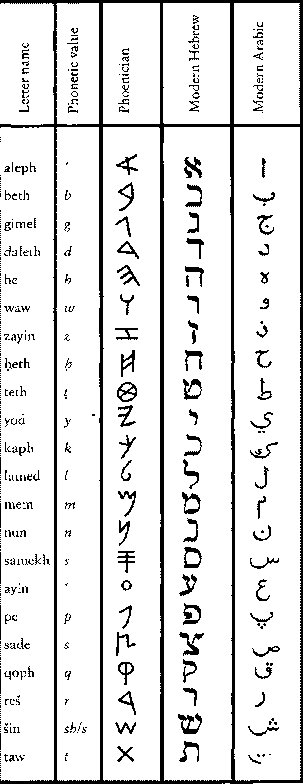 Letter name Phonetic value Phoenician Modern Hebrew Modern Arabic
aleph ʼ 𐤀 א ا
beth b 𐤁 ב ب
gimel g 𐤂 ג ج
daleth d 𐤃 ד د
he h 𐤄 ה ه
waw w 𐤅 ו و
zayin z 𐤆 ז ز
ḥeth ḥ 𐤇 ח ح
teth ṭ 𐤈 ט ط
yod y 𐤉 י ي
kaph k 𐤊 כ ك
lamed l 𐤋 ל ل
mem m 𐤌 מ م
nun n 𐤍 נ ن
samekh s 𐤎 ס س
ayin ʻ 𐤏 ע ع
pe p 𐤐 פ
sade s 𐤑 צ ص
qoph q 𐤒 ק ق
reš r 𐤓 ר ر
šin sh/s 𐤔 ש ش
taw t 𐤕 ת ت